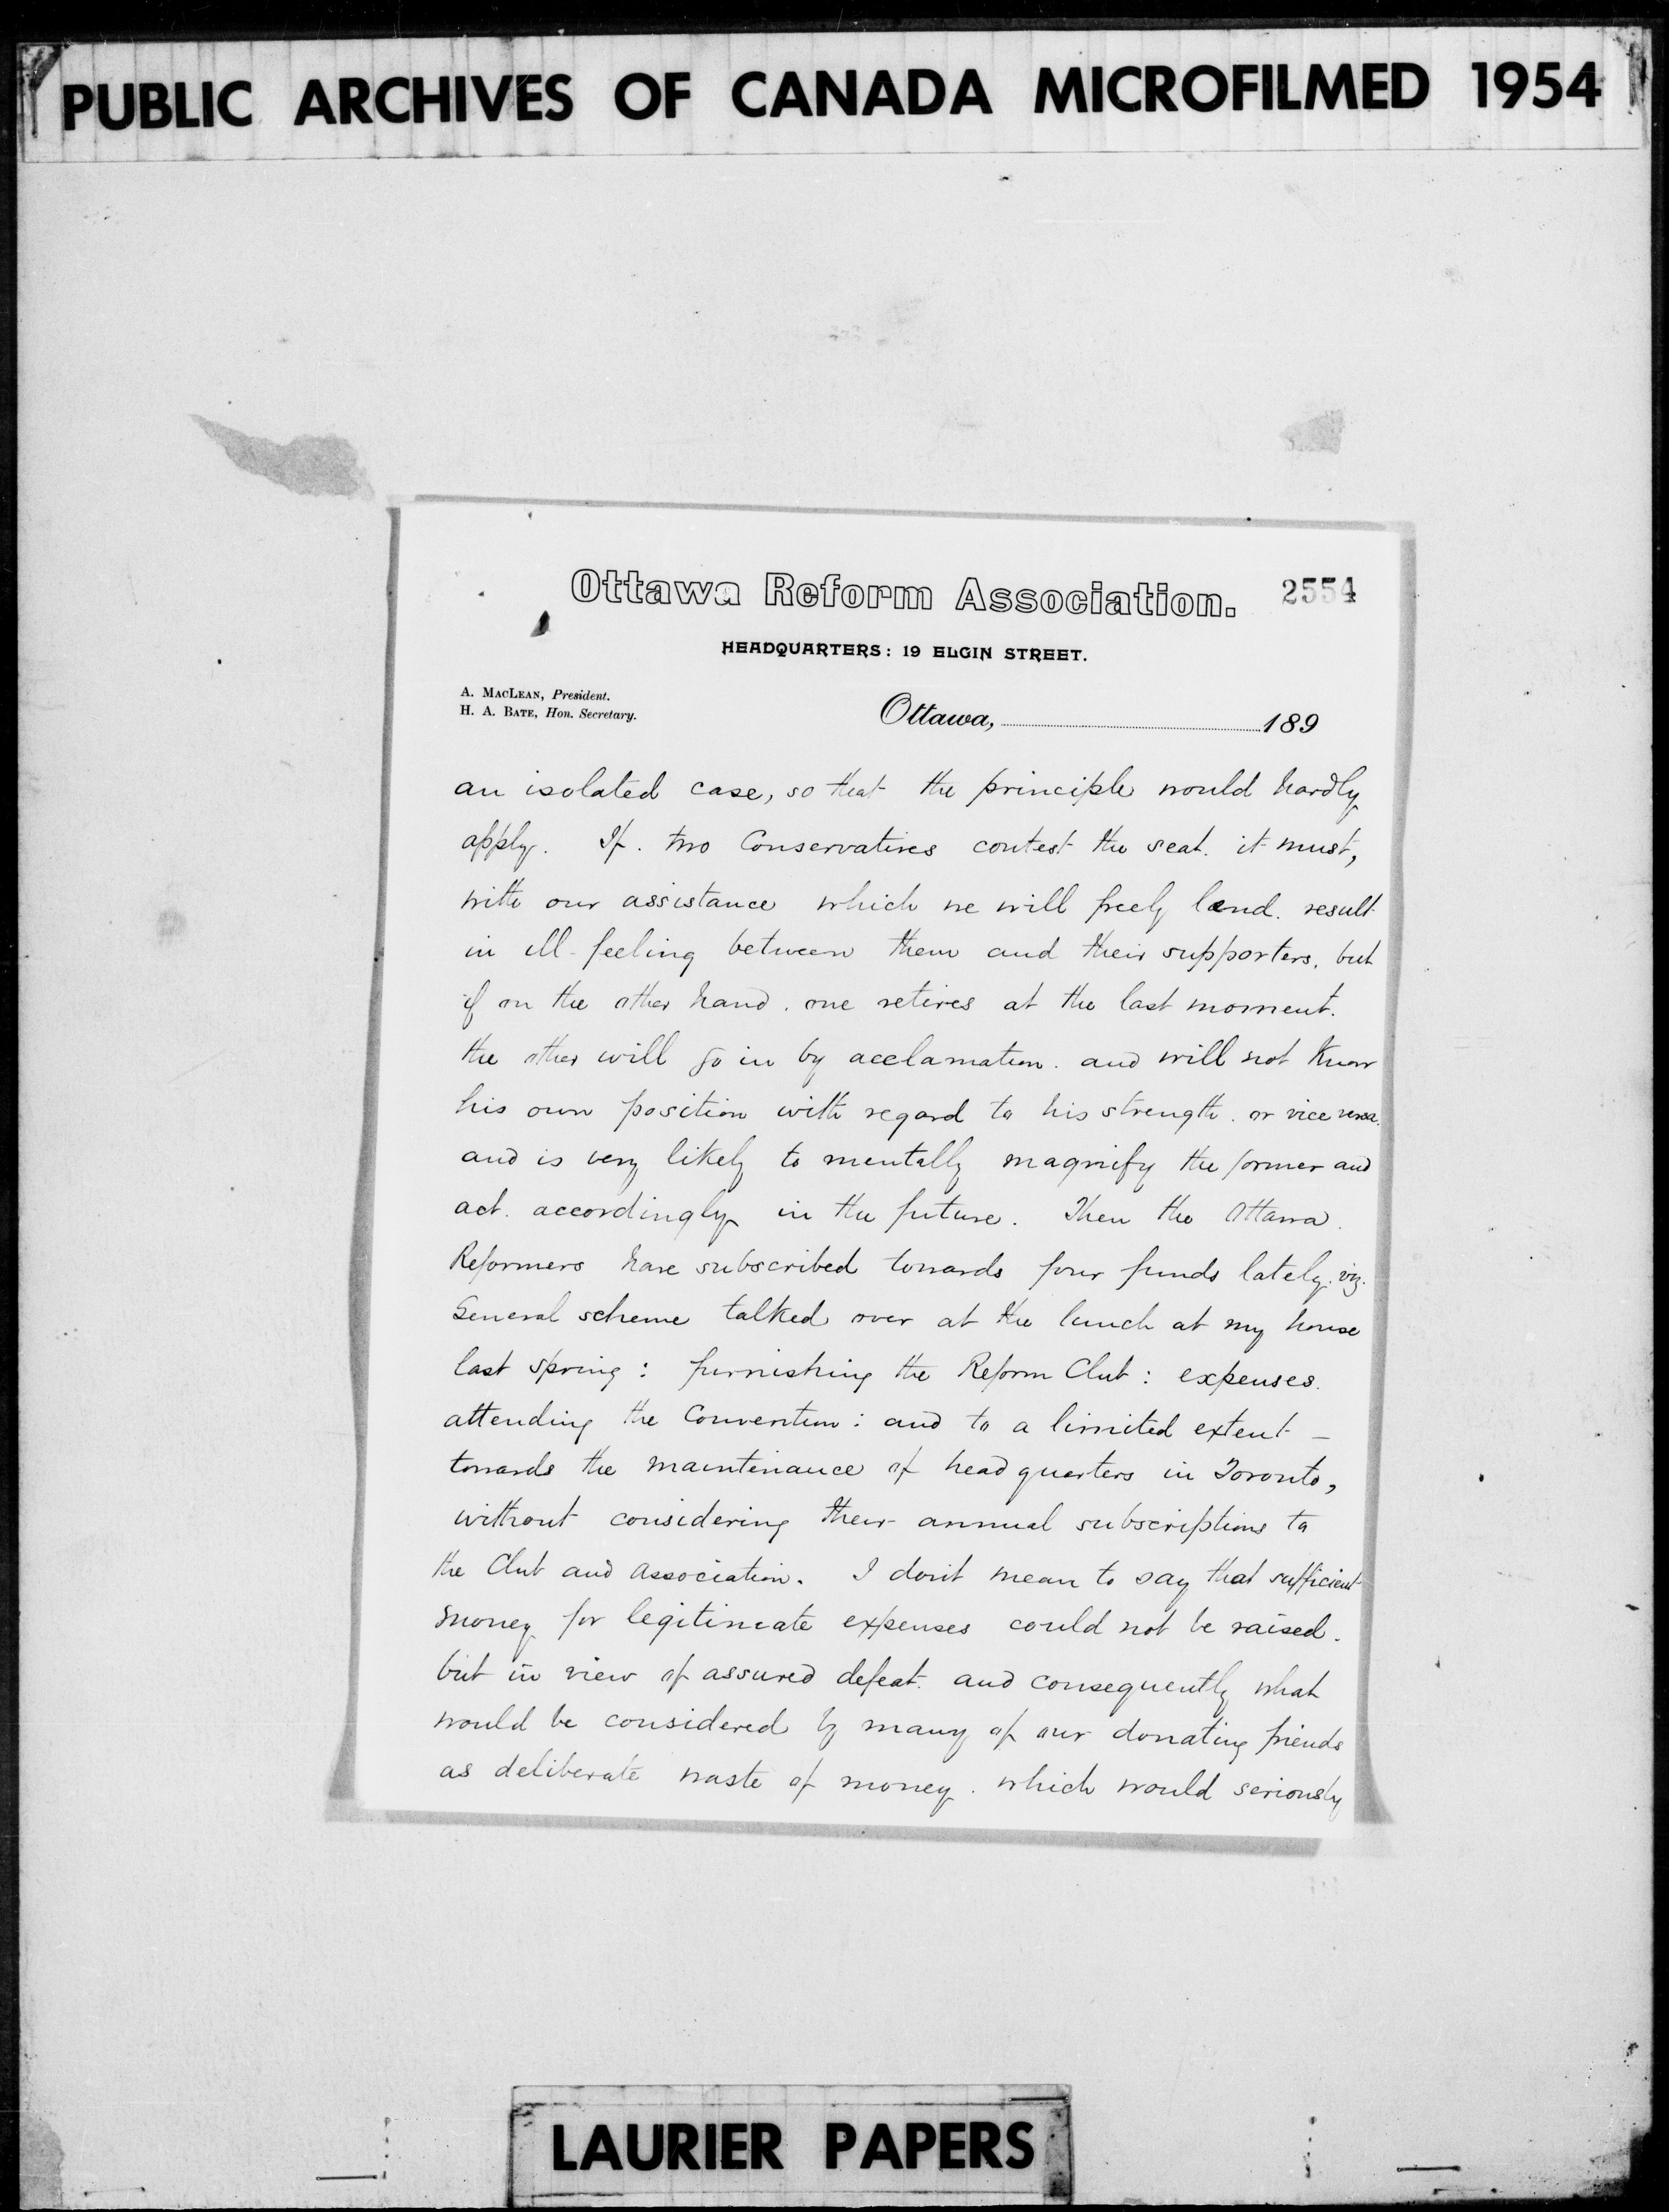 PUBLIC ARCHIVES OF CANADA MICROFILMED 1954
Ottawa Reform Association. 2554
HEADQUARTERS: 19 ELGIN STREET.
A. MACLEAN, President.
H. A. BATE, Hon. Secretary.
Ottawa, 189
an isolated case, so that the principle would hardly
apply. If two Conservatives contest the seat. it must,
with our assistance which we will freely lend. result
in ill-feeling between them and their supporters, but
if on the other hand. one retires at the last moment.
the other will go in by acclamation. and will not know
his own position with regard to his strength. or vice versa.
and is very likely to mentally magnify the former and
act. accordingly in the future. Then the Ottawa
Reformers have subscribed towards four funds lately. viz.
General scheme talked over at the lunch at my house
last spring: furnishing the Reform Club: expenses.
attending the Convention: and to a limited extent -
towards the maintenance of headquarters in Toronto,
without considering their annual subscriptions to
the Club and Association. I don't mean to say that sufficient
money for legitimate expenses could not be raised.
but in view of assured defeat. and consequently what
would be considered by many of our donating friends
as deliberate waste of money. which would seriously
LAURIER PAPERS